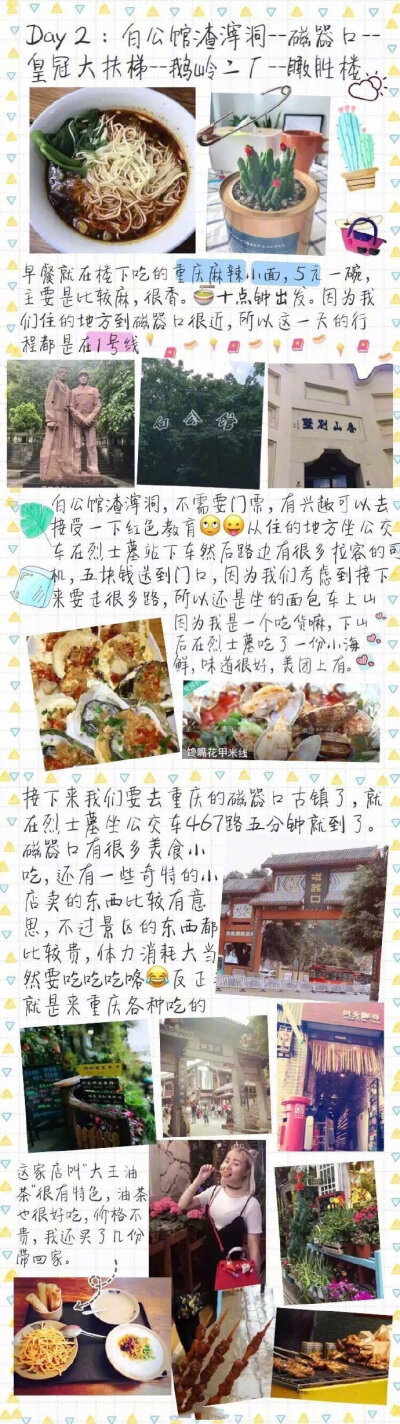 Day 2：白公馆渣滓洞--磁器口--
皇冠大扶梯--鹅岭二厂--瞰胜楼
早餐就在楼下吃的重庆麻辣小面,5元一碗,
主要是比较麻,很香。十点钟出发。因为我
们住的地方到磁器口很近,所以这一天的行
程都是在1号线
白公馆
香山别墅
白公馆渣滓洞,不需要门票,有兴趣可以去
接受一下红色教育🙄😛从住的地方坐公交
车在烈士墓站下车然后路边有很多拉客的司
机,五块钱送到门口,因为我们考虑到接下
来要走很多路,所以还是坐的面包车上山
因为我是一个吃货嘛,下山
后在烈士墓吃了一份小海
鲜,味道很好,美团上有。
馋嘴花甲米线
接下来我们要去重庆的磁器口古镇了,就
在烈士墓坐公交车467路五分钟就到了。
磁器口有很多美食小
吃,还有一些奇特的小
店卖的东西比较有意
思,不过景区的东西都
比较贵,体力消耗大当
然要吃吃吃咯😂反正
就是来重庆各种吃的
磁器口
这家店叫"大王油
茶"很有特色,油茶
也很好吃,价格不
贵,我还买了几份
带回家。